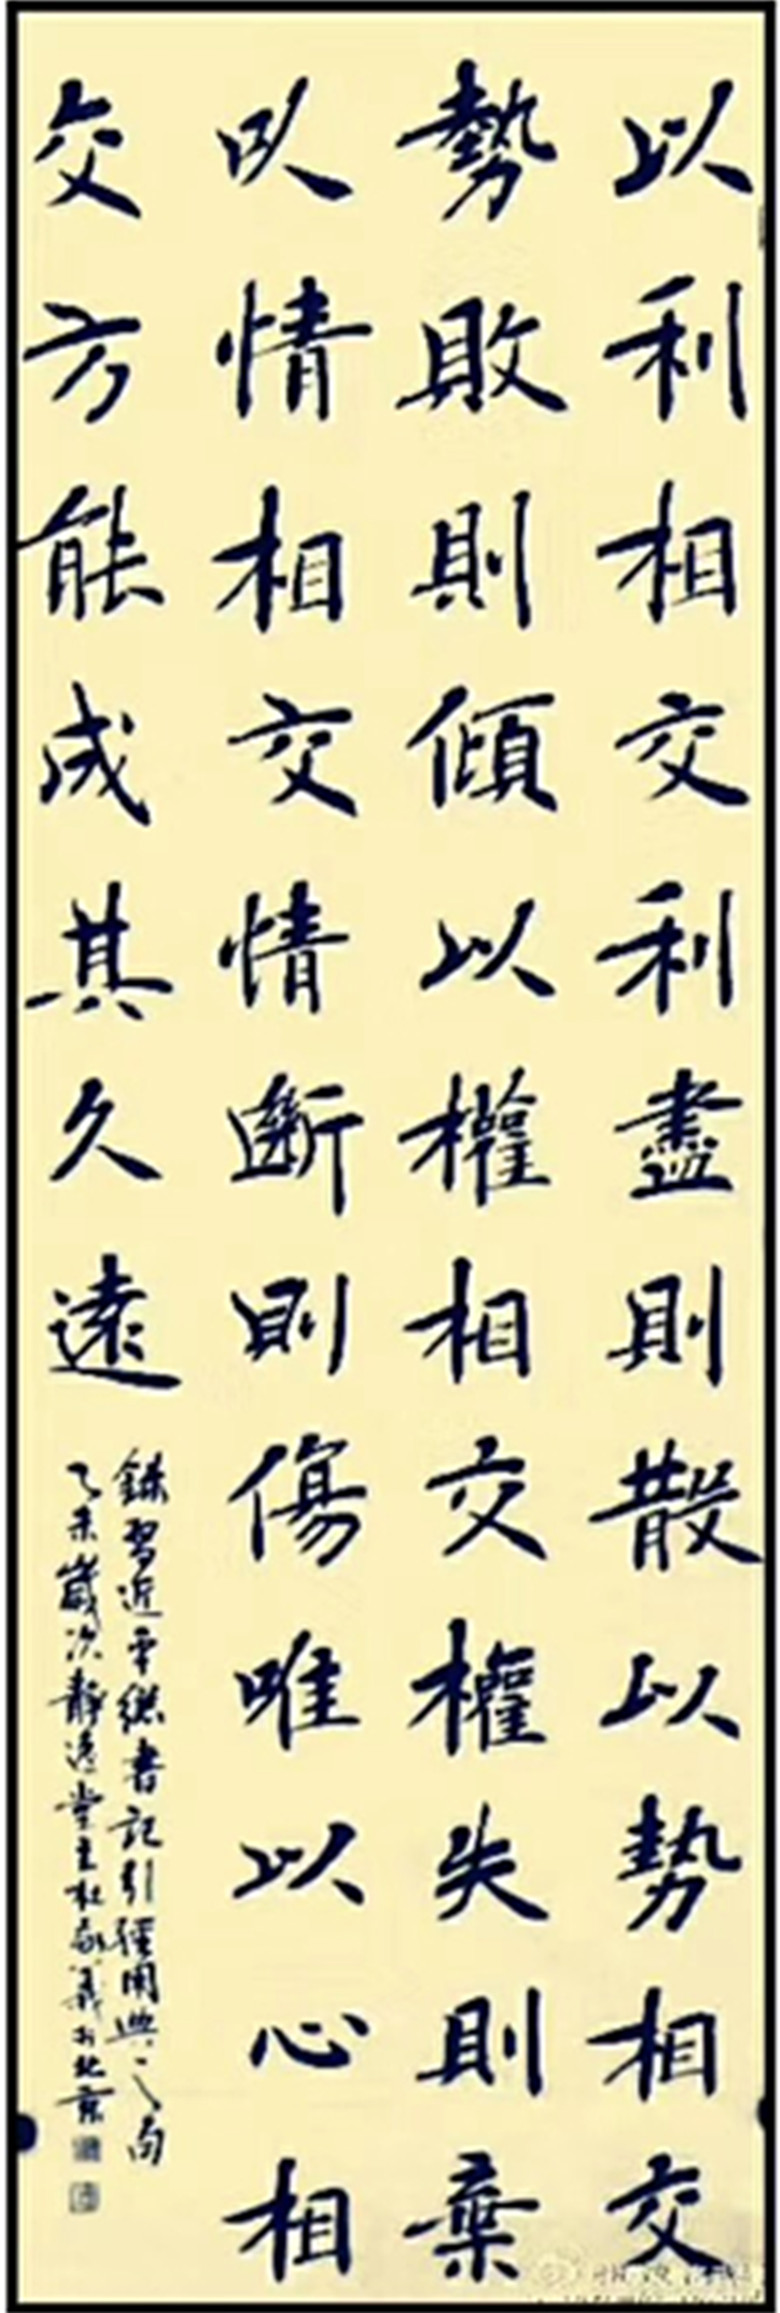 以利相交利盡則散以勢相交
勢敗則傾以權相交權失則棄
以情相交情斷則傷唯以心相
交方能成其久遠
錄習近平總書記引經用典之句
乙未歲次靜逸堂主杜啟義於北京